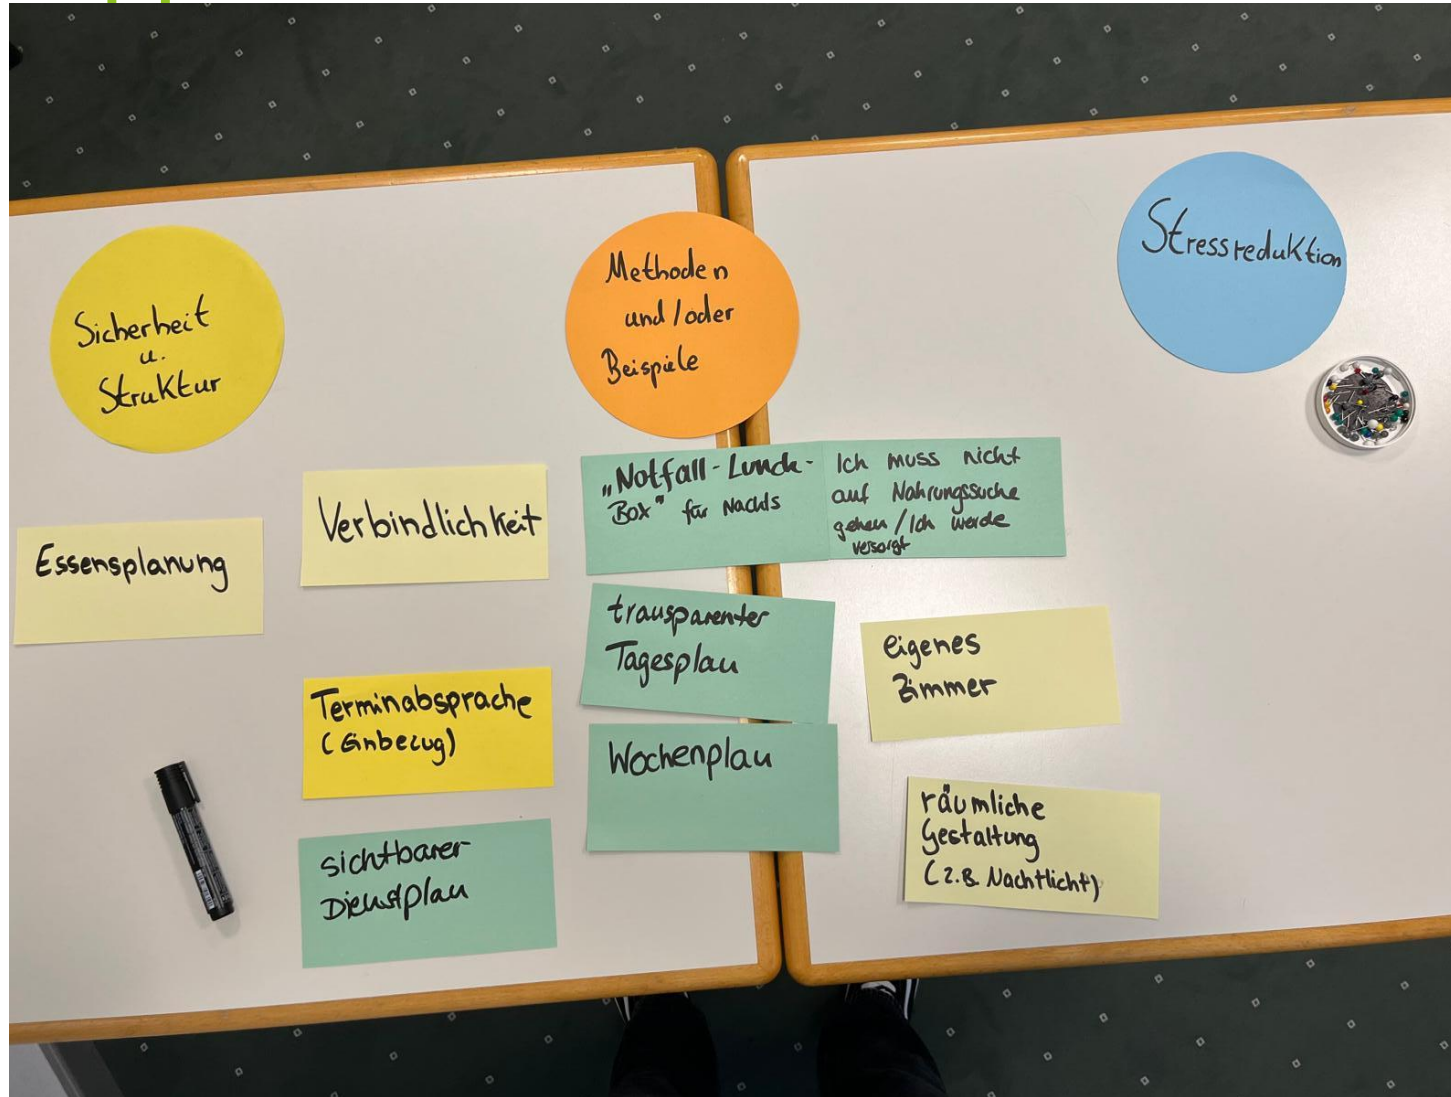 Sicherheit
u.
Struktur
Methoden
und/oder
Beispiele
Stressreduktion
Essensplanung
Verbindlichkeit
Terminabsprache
(Einbezug)
sichtbarer
Dienstplan
„Notfall-Lunch-
Box" für Nachts
Ich muss nicht
auf Nahrungssuche
gehen/Ich werde
versorgt
transparenter
Tagesplan
Wochenplan
eigenes
Zimmer
räumliche
Gestaltung
(z.B. Nachtlicht)